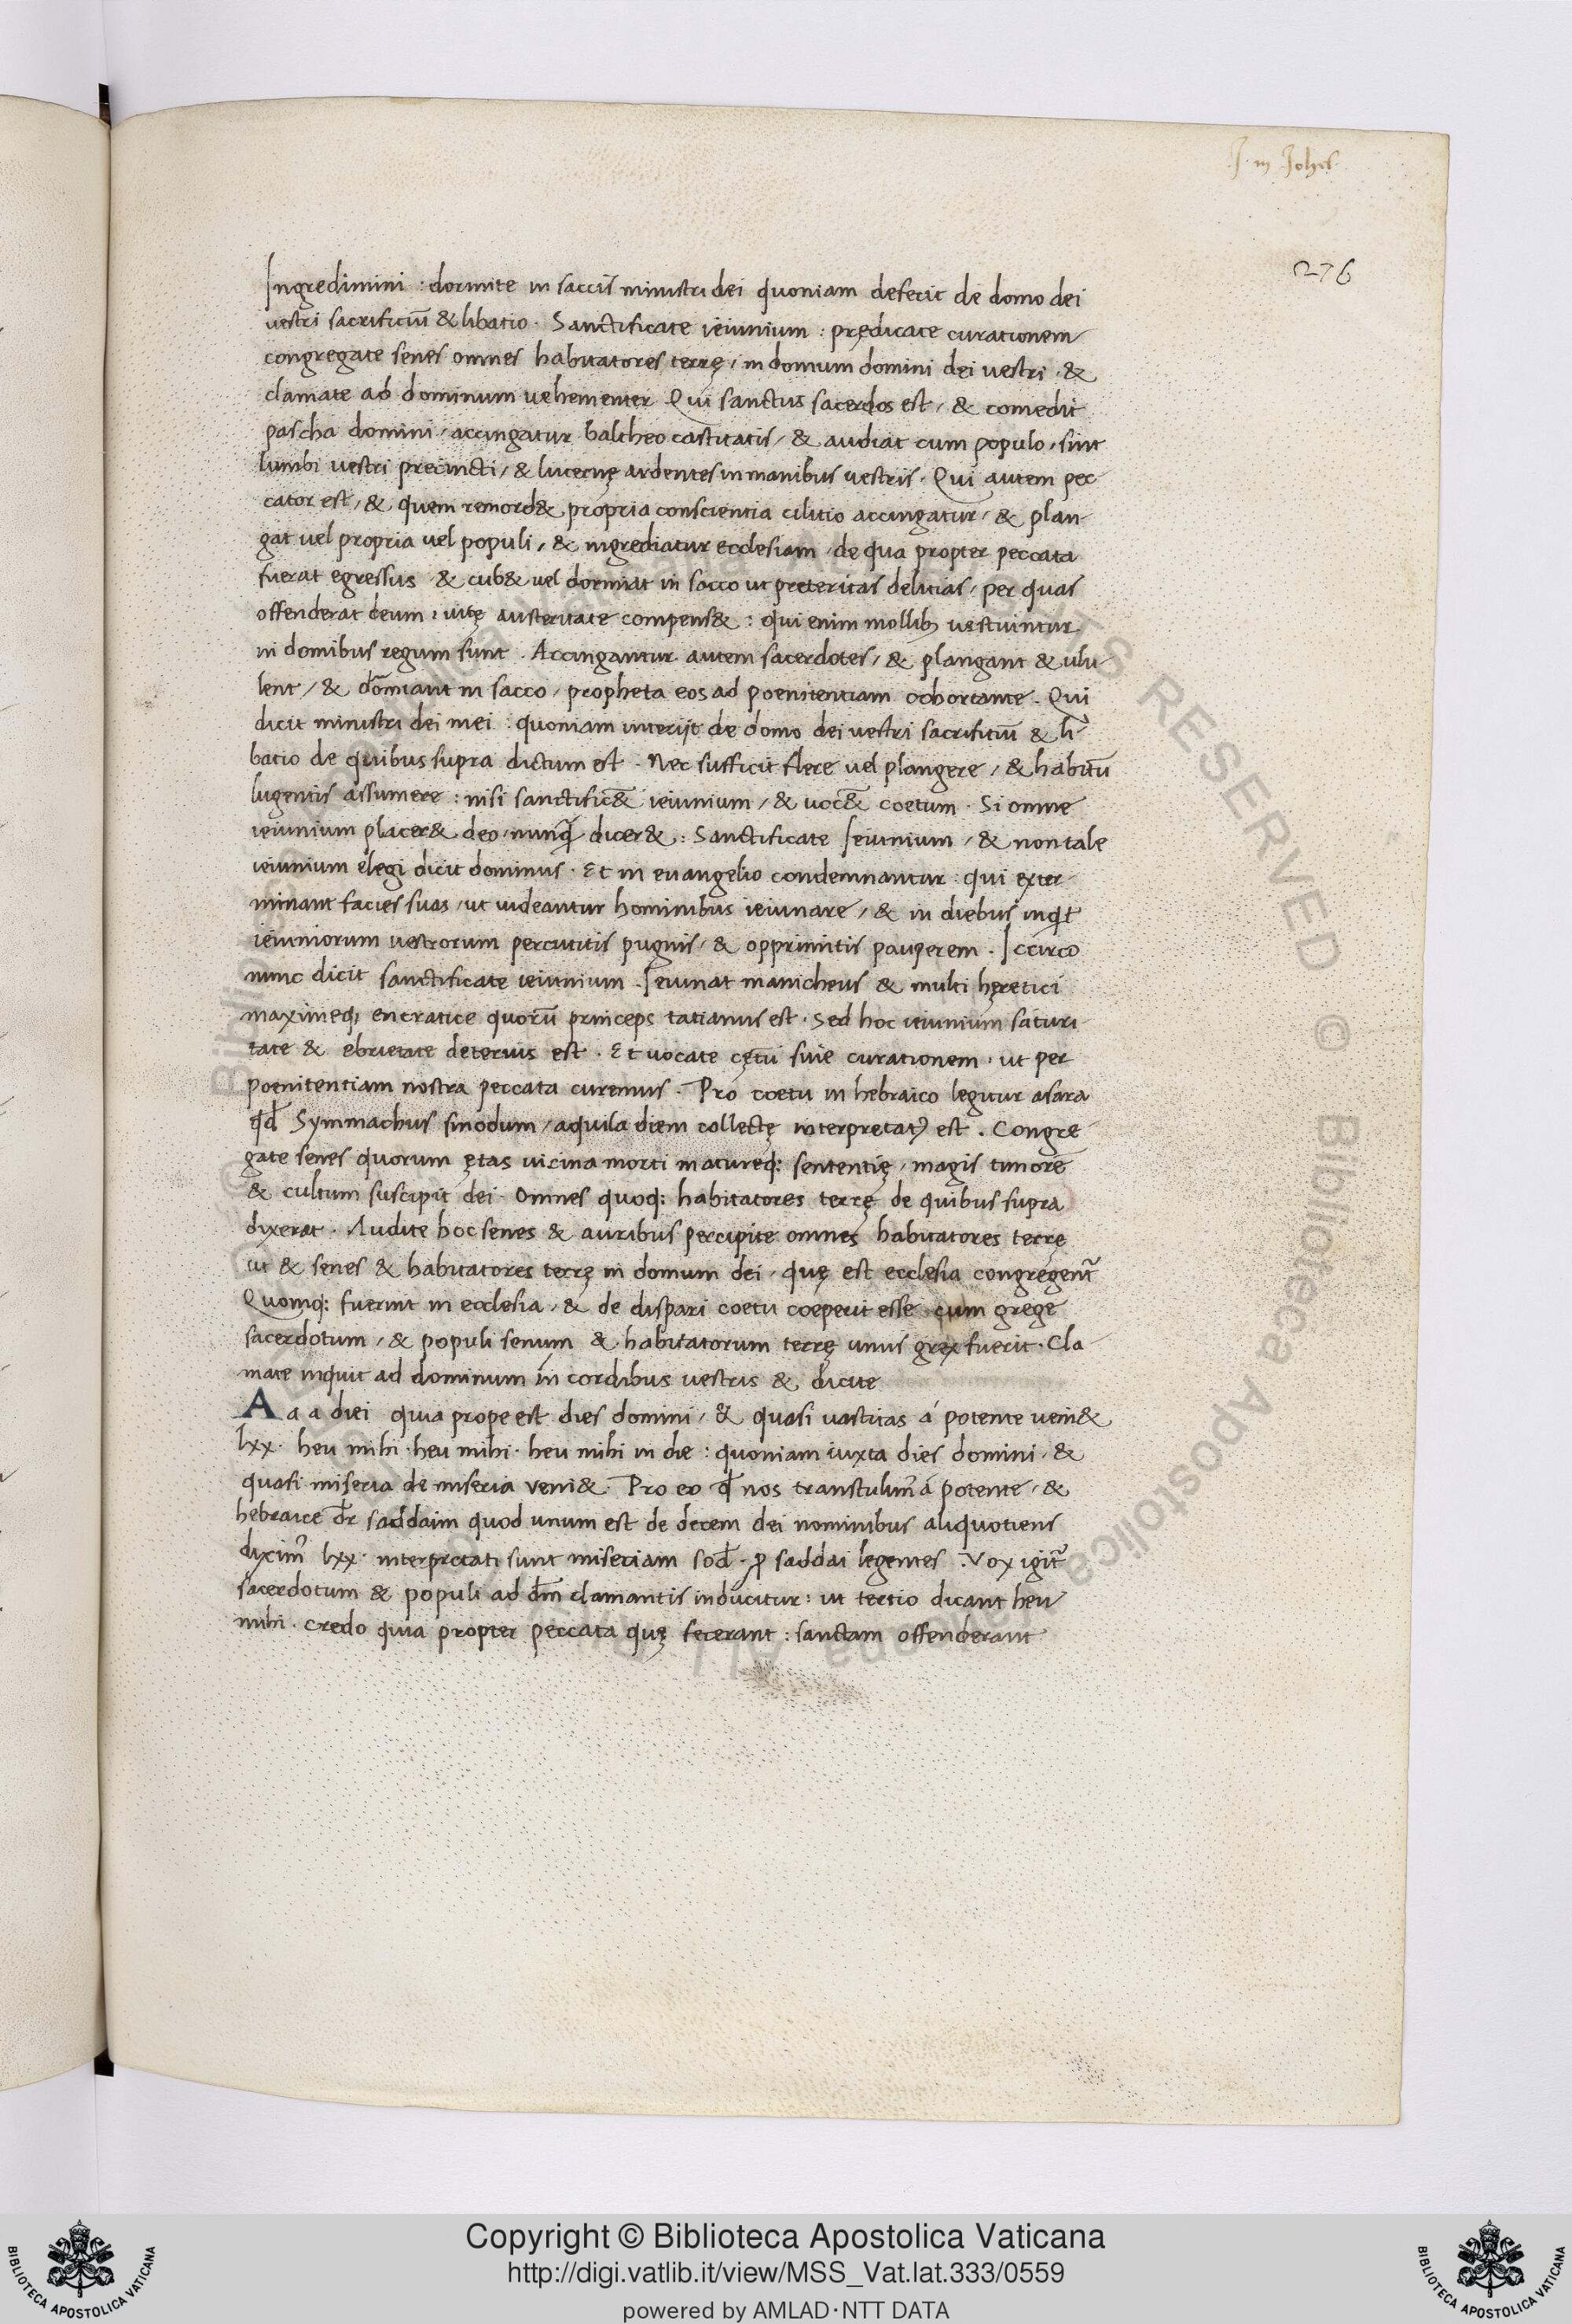 J. in Johel
276
Ingredimini : dormite in saccis ministri dei quoniam defecit de domo dei
vestri sacrificiū & libatio . Sanctificate ieiunium : prędicate curationem
congregate senes omnes habitatores terrę / in domum domini dei vestri . &
clamate ad dominum uehementer Qui sanctus sacerdos est / & comedit
pascha domini / accingatur baltheo castitatis / & audiat cum populo / sint
lumbi vestri precincti / & lucernę ardentes in manibus vestris . Qui autem pec
cator est / & quem remord& propria conscientia cilitio accingatur / & plan
gat vel propria vel populi / & ingrediatur ecclesiam / de qua propter peccata
fuerat egressus / & cub& vel dormiat in sacco ut preteritas delitias / per quas
offenderat deum : uitę austeritate compens& : qui enim mollibꝫ vestiuntur
in domibus regum sunt . Accingantur autem sacerdotes / & plangant & ulu
lent / & dormiant in sacco / propheta eos ad poenitentiam cohortante . Qui
dicit ministri dei mei : quoniam interijt de domo dei vestri sacrificiū & li
batio de quibus supra dictum est . Nec sufficit flere vel plangere / & habitū
lugentis assumere : nisi sanctific& ieiunium / & uoc& coetum . Si omne
ieiunium placer& deo / nunꝙ̄ dicer& : Sanctificate Ieiunium / & non tale
ieiunium elegi dicit dominus . Et in euangelio condemnantur : qui exter
minant facies suas / ut uideantur hominibus ieiunare / & in diebus inqt
ieiuniorum vestrorum percutitis pugnis / & opprimitis pauperem . Iccirco
nunc dicit sanctificate ieiunium . Ieiunat manicheus & multi hęretici
maximeq; encratice quorū princeps tatianus est . Sed hoc ieiunium saturi
tate & ebrietate deterius est . Et uocate cętū siue curationem . ut per
poenitentiam nostra peccata curemus . Pro coetu in hebraico legitur asara
qd̄ Symmachus sinodum / aquila diem collectę interpretatꝰ est . Congre
gate senes quorum ętas uicina morti matureq: sententię / magis timorē
& cultum suscipit dei . Omnes quoq: habitatores terrę de quibus supra
dixerat . Audite hoc senes & auribus percipite omnes habitatores terrę
ut & senes & habitatores terrę in domum dei . quę est ecclesia congregent̃
Quomq: fuerint in ecclesia / & de dispari coetu coeperit esse cum grege
sacerdotum / & populi senum & habitatorum terrę unus grex fuerit . Cla
mate inquit ad dominum in cordibus vestris & dicite
A a a diei quia prope est dies domini / & quasi vastitas á potente veni&
lxx . heu mihi . heu mihi . heu mihi in die : quoniam iuxta dies domini . &
quasi miseria de miseria veni& . Pro eo qd̄ nos transtulim̃ á potente / &
hebraice dr̄ saddaim quod unum est de decem dei nominibus aliquotiens
dixim̃ lxx . interpretati sunt miseriam sod̄ . ꝓ saddai legentes . Vox igit̃
sacerdotum & populi ad dm̄ clamantis inducitur : ut tertio dicant heu
mihi . credo quia propter peccata quę fecerant : sanctam offenderant
© Biblioteca Apostolica Vaticana ALL RIGHTS RESERVED
BIBLIOTECA APOSTOLICA VATICANA
Copyright © Biblioteca Apostolica Vaticana
http://digi.vatlib.it/view/MSS_Vat.lat.333/0559
powered by AMLAD·NTT DATA
BIBLIOTECA APOSTOLICA VATICANA